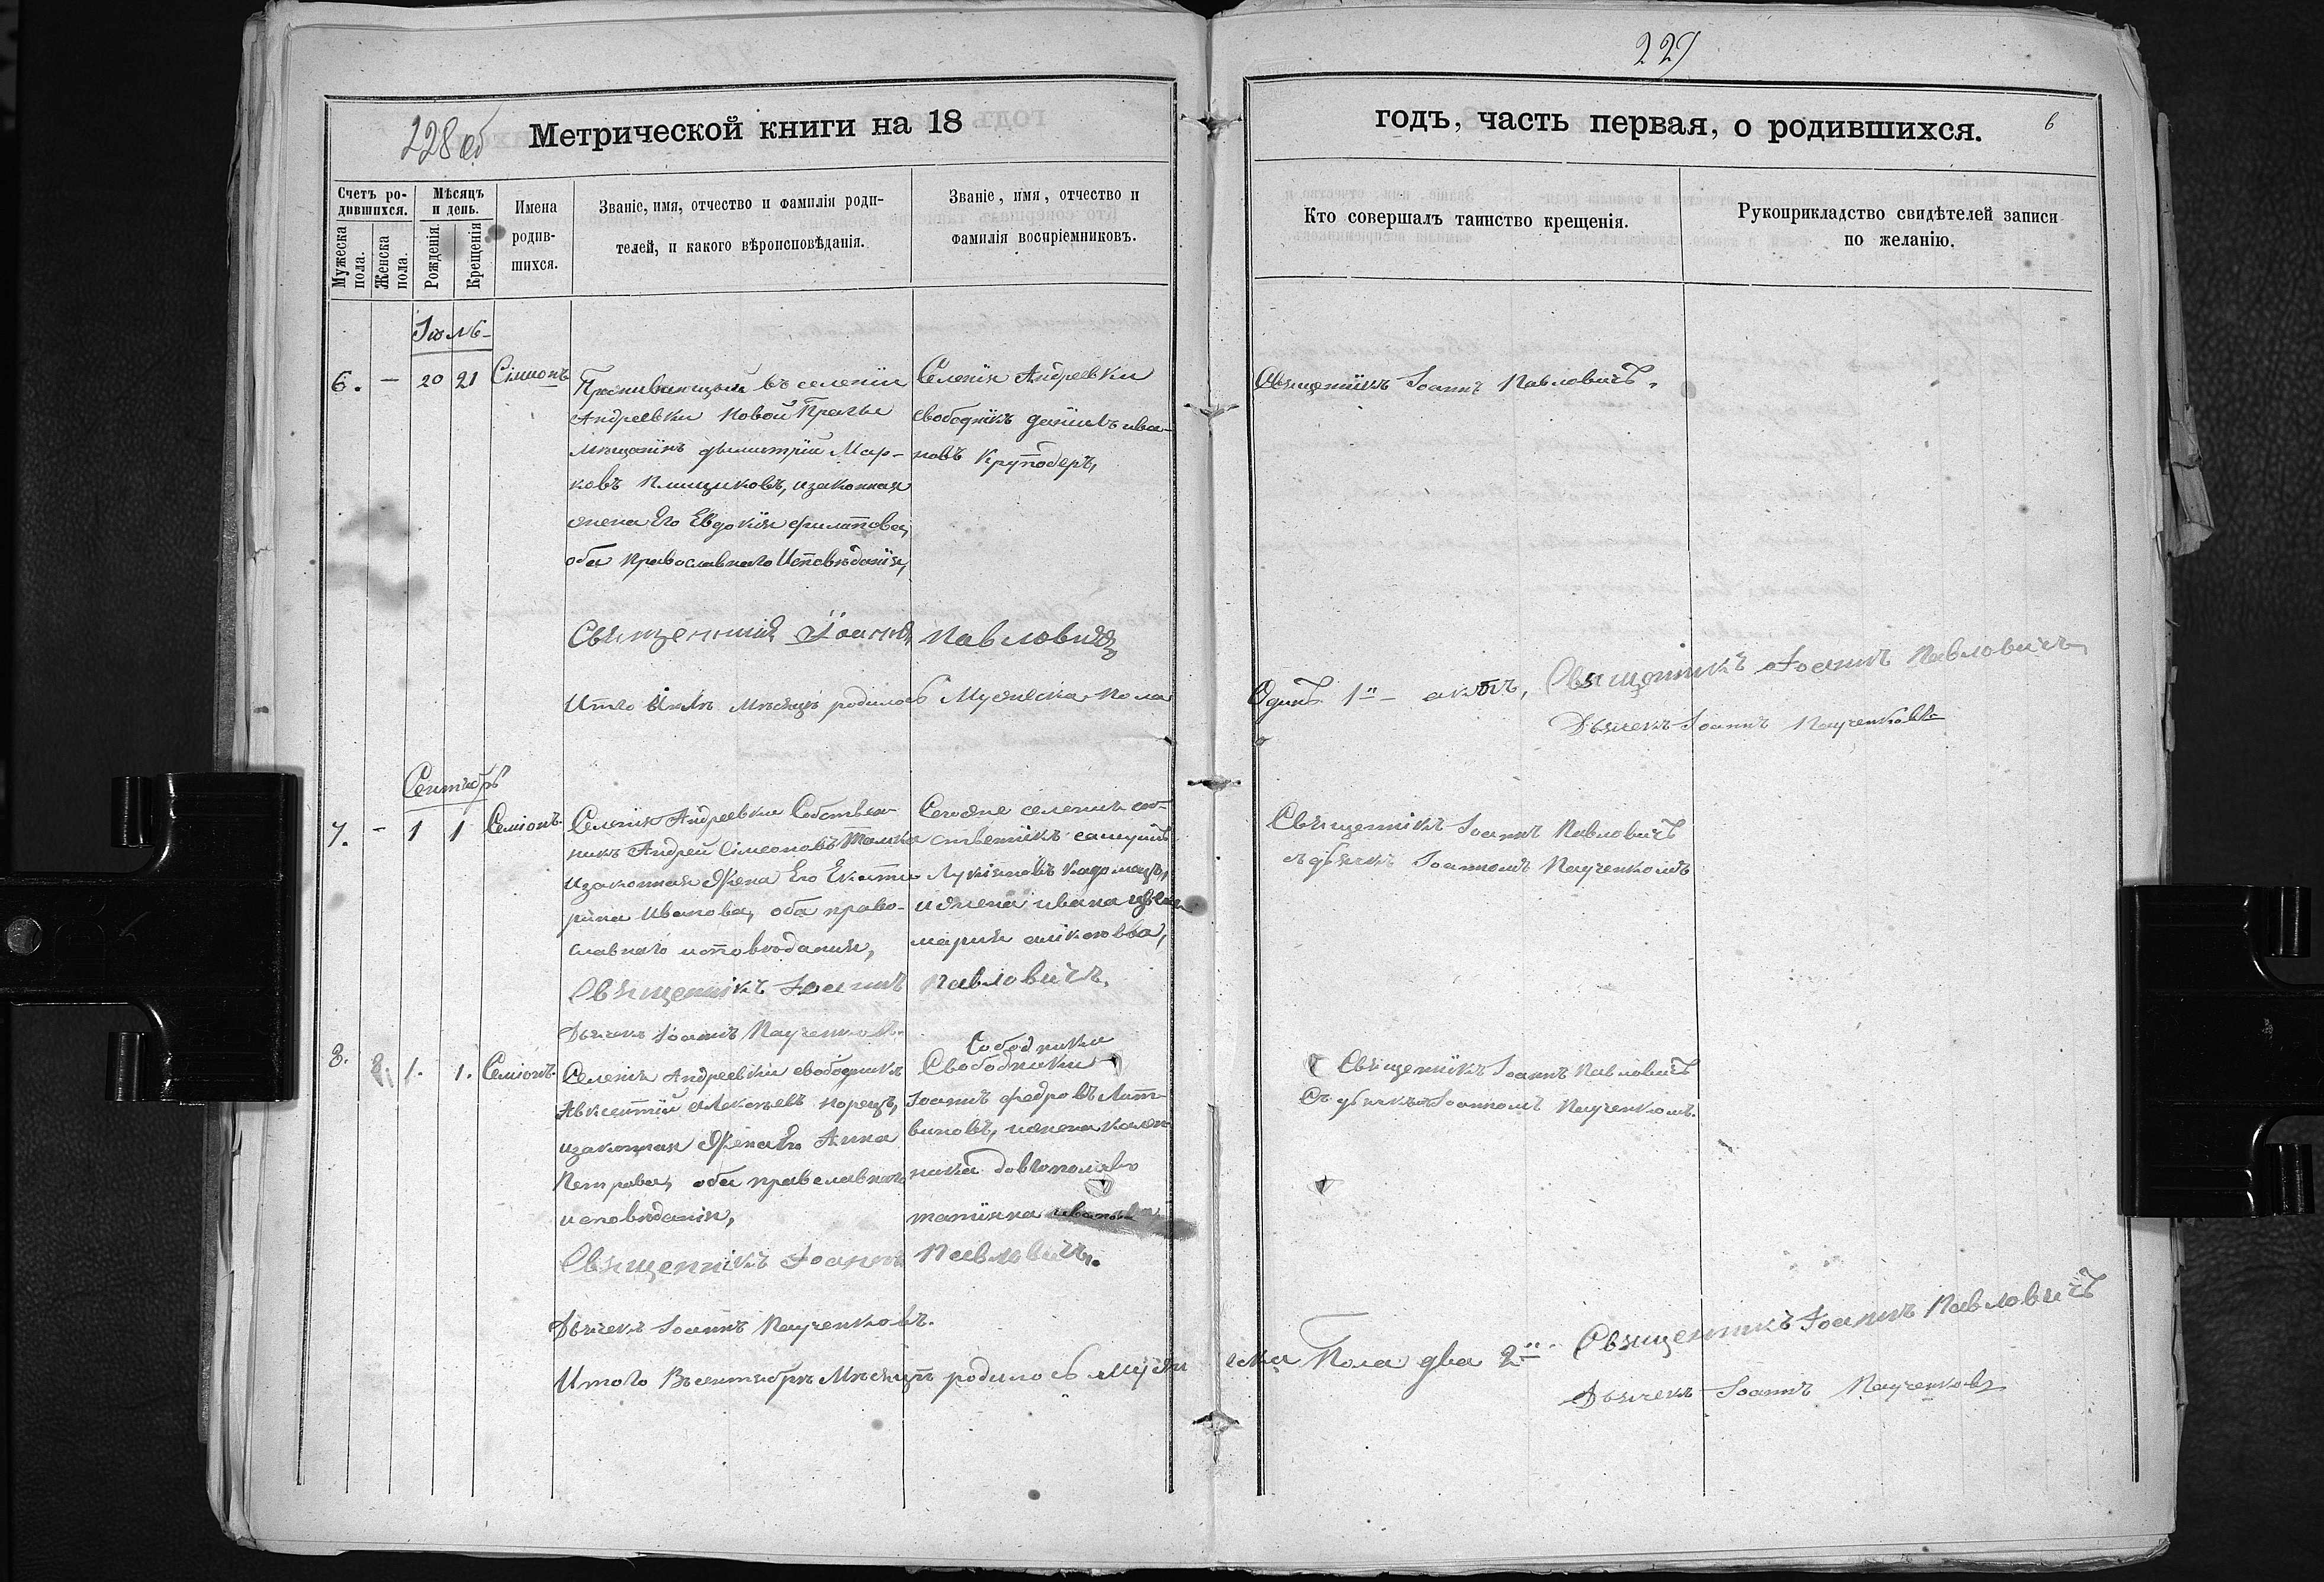 229
228 об
Метрической книги на 18
годъ, часть первая, о родившихся.
6
Счетъ ро-
дившихся.
Мѣсяцъ
и день.
Имена
родив-
шихся.
Званіе, имя, отчество и фамилія роди-
телей, и какого вѣроисповѣданія.
Званіе, имя, отчество и
фамилія воспріемниковъ.
Мужеска
пола.
Женска
пола.
Рожденія.
Крещенія
Кто совершалъ таинство крещенія.
Рукоприкладство свидѣтелей записи
по желанію.
6. – 20 21 Сімионъ
въ селеніи
Андреевки Новой Праги
мѣщанинъ Димитрій Мар-
ковъ изаконная
жена Его Евдокія Филипова,
оба Православнаго Исповѣданія,
Селенія Андреевки
свободникъ даніилъ ива-
новъ Круподеръ,
Священникъ Іоаннъ Павловичъ.
Священникъ Іоаннъ Павловичъ
Итого мѣсяцѣ родилось Мужеска Пола
Одинъ 1 – Священникъ Іоаннъ Павловичъ
Дьячекъ Іоаннъ Паученковъ
Сентябрь
7. – 1 1 Семіонъ.
Селенія Андреевки Собствен-
никъ Андрей Сімеоновъ
изаконная Жена Его Екате-
рина Иванова, оба право-
славнаго исповѣданія,
Тогоже селенія соб-
ственникъ
Лукіяновъ
и жена ивана
марія
Священникъ Іоаннъ Павловичъ
съ дьячкомъ Іоанномъ Паученкомъ
Священникъ Іоаннъ Павловичъ.
Дьячекъ Іоаннъ Паученковъ.
8. 1. 1. Семіонъ.
Селенія Андреевки свободникъ
Авксентій Алексѣевъ
изаконная Жена Его Анна
Петрова, оба православнаго
исповѣданія,
Свободники
Іоаннъ федоровъ Лит-
виновъ, и жена
татіяна
Священникъ Іоаннъ Павловичъ
Съ дьячкомъ Іоанномъ Паученкомъ.
Священникъ Іоаннъ Павловичъ.
Дьячекъ Іоаннъ Паученковъ.
Итого Въ сентябрѣ Мѣсяцѣ родилось Муже
ска Пола два 2 Священникъ Іоаннъ Павловичъ
Дьячекъ Іоаннъ Паученковъ